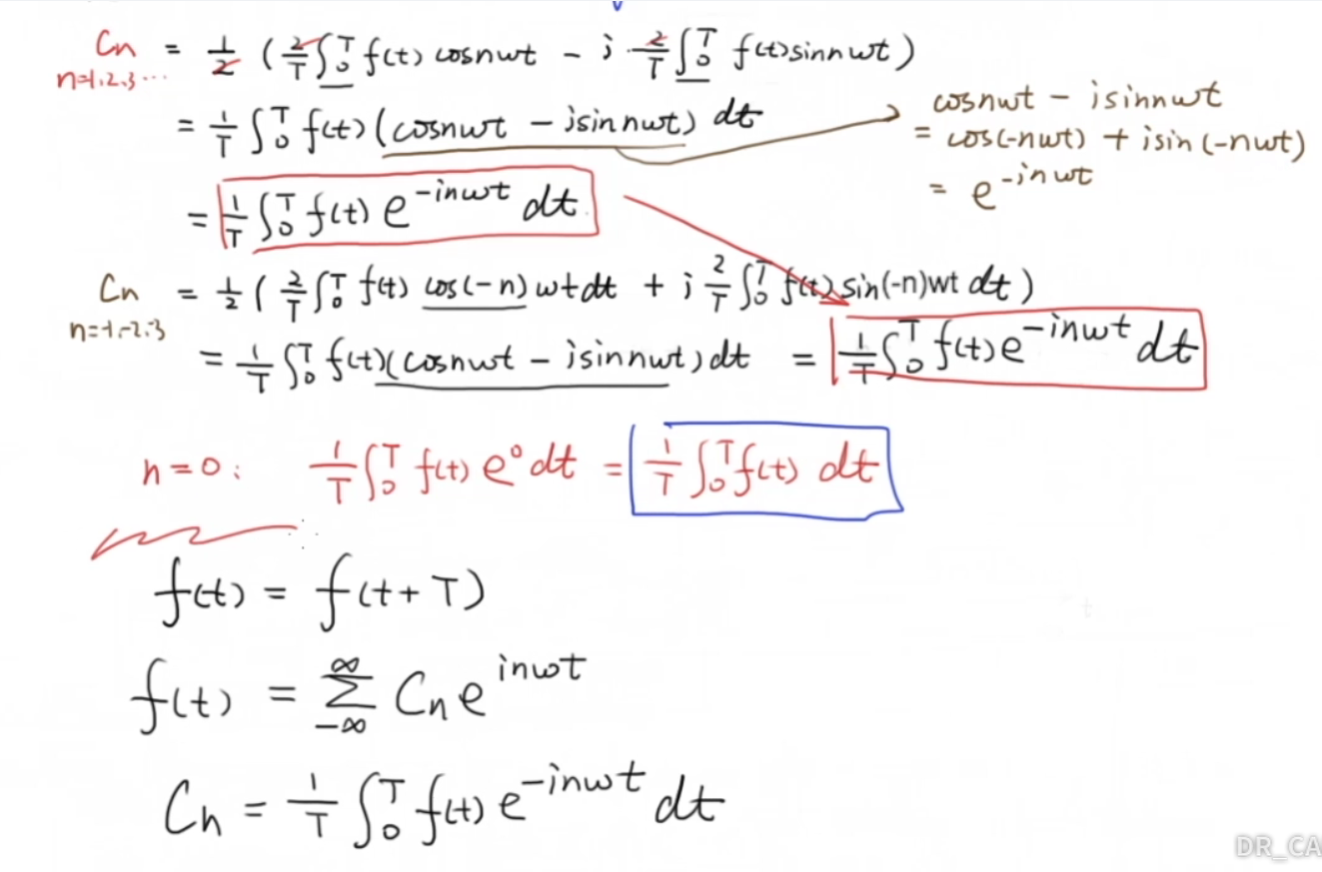 Cn = 1/2 (2/T ∫₀ᵀ f(t) cosnwt - i 2/T ∫₀ᵀ f(t) sinnwt)
n=1.2.3...
= 1/T ∫₀ᵀ f(t) (cosnwt - isinnwt) dt
cosnwt - isinnwt
= cos(-nwt) + isin(-nwt)
= e^-inwt
= 1/T ∫₀ᵀ f(t) e^-inwt dt
Cn = 1/2 (2/T ∫₀ᵀ f(t) cos(-n)wtdt + i 2/T ∫₀ᵀ f(t) sin(-n)wt dt)
n=-1.-2.-3
= 1/T ∫₀ᵀ f(t)(cosnwt - isinnwt)dt = 1/T ∫₀ᵀ f(t)e^-inwt dt
n=0: 1/T ∫₀ᵀ f(t) e⁰ dt = 1/T ∫₀ᵀ f(t) dt
f(t) = f(t+T)
f(t) = ∑_{-∞}^{∞} Cn e^inwt
Cn = 1/T ∫₀ᵀ f(t) e^-inwt dt
DR_CA